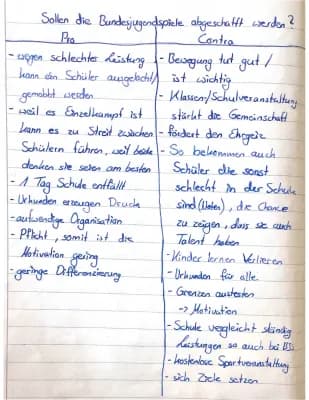 Sollen die Bundesjugendspiele abgeschafft werden?
Pro
- wegen schlechter Leistung
kann ein Schüler ausgelacht/
gemobbt werden
- weil es Einzelkampf ist
kann es zu Streit zwischen
Schülern führen, weil beide
denken sie seien am besten
- 1 Tag Schule entfällt
- Urkunden erzeugen Druck
- aufwendige Organisation
- Pflicht, somit ist die
Motivation gering
- geringe Differenzierung
Contra
- Bewegung tut gut /
ist wichtig
- Klassen/Schulveranstaltung
stärkt die Gemeinschaft
- fördert den Ehrgeiz
- So bekommen auch
Schüler die sonst
schlecht in der Schule
sind (Noten), die Chance
zu zeigen, dass sie auch
Talent haben
- Kinder lernen Verlieren
- Urkunden für alle
- Grenzen austesten
-> Motivation
- Schule vergleicht ständig
Leistungen so auch bei
- kostenlose Sportveranstaltung
- sich Ziele setzen